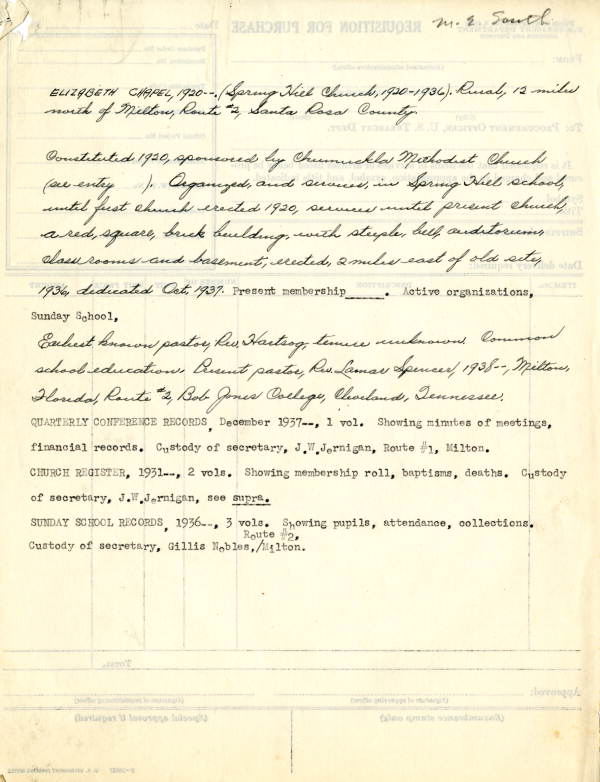 M. E. South
ELIZABETH CHAPEL, 1920--. (Spring Hill Church, 1920-1936). Rural, 12 miles
north of Milton, Route #2, Santa Rosa County.
Constituted 1920, sponsored by Chumuckla Methodist Church
(see entry ). Organized, and services, in Spring Hill school,
until first church erected 1920, services until present church,
a red, square, brick building, with steeple, bell, auditorium,
class rooms and basement, erected, 2 miles east of old site,
1936, dedicated Oct, 1937. Present membership_____. Active organizations,
Sunday School,
Earliest known pastor, Rev. Hartsog, tenure unknown. Common
school education. Present pastor, Rev. Lamar Spencer, 1938--, Milton,
Florida, Route #2, Bob Jones College, Cleveland, Tennessee.
QUARTERLY CONFERENCE RECORDS, December 1937--, 1 vol. Showing minutes of meetings,
financial records. Custody of secretary, J.W.Jernigan, Route #1, Milton.
CHURCH REGISTER, 1931--, 2 vols. Showing membership roll, baptisms, deaths. Custody
of secretary, J.W.Jernigan, see supra.
SUNDAY SCHOOL RECORDS, 1936--, 3 vols. Showing pupils, attendance, collections.
Route #2,
Custody of secretary, Gillis Nobles,/Milton.
REQUISITION FOR PURCHASE
FROM:
To: PROCUREMENT OFFICER, U. S. TREASURY DEPT.
TOTAL
Approved:
(Special approval if required)
(Encumbrance stamp only)